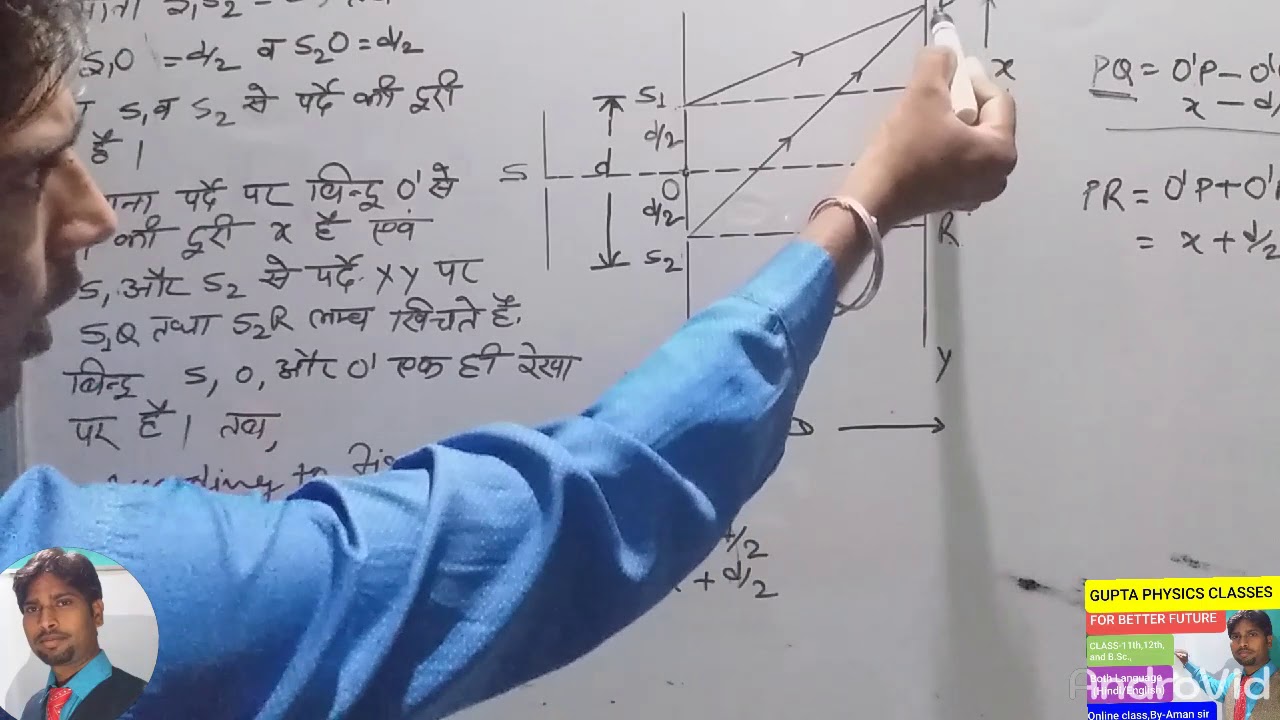 S₁O = d/2 व S₂O = d/2
S₁ व S₂ से पर्दे की दूरी
है।
माना पर्दे पर बिन्दु O' से
की दूरी x है एवं
S₁ और S₂ से पर्दे XY पर
S₁Q तथा S₂R लम्ब खिचते है.
बिन्दु S, O, और O' एक ही रेखा
पर है। तब,
S
d
S₁
d/2
O
d/2
S₂
x
R
Y
D
d/2
+ d/2
PQ = O'P - O'
x - d/
PR = O'P + O'
= x + d/2
GUPTA PHYSICS CLASSES
FOR BETTER FUTURE
CLASS-11th,12th,
and B.Sc.,
Both Language
(Hindi/English)
Online class,By-Aman sir
AndroVid